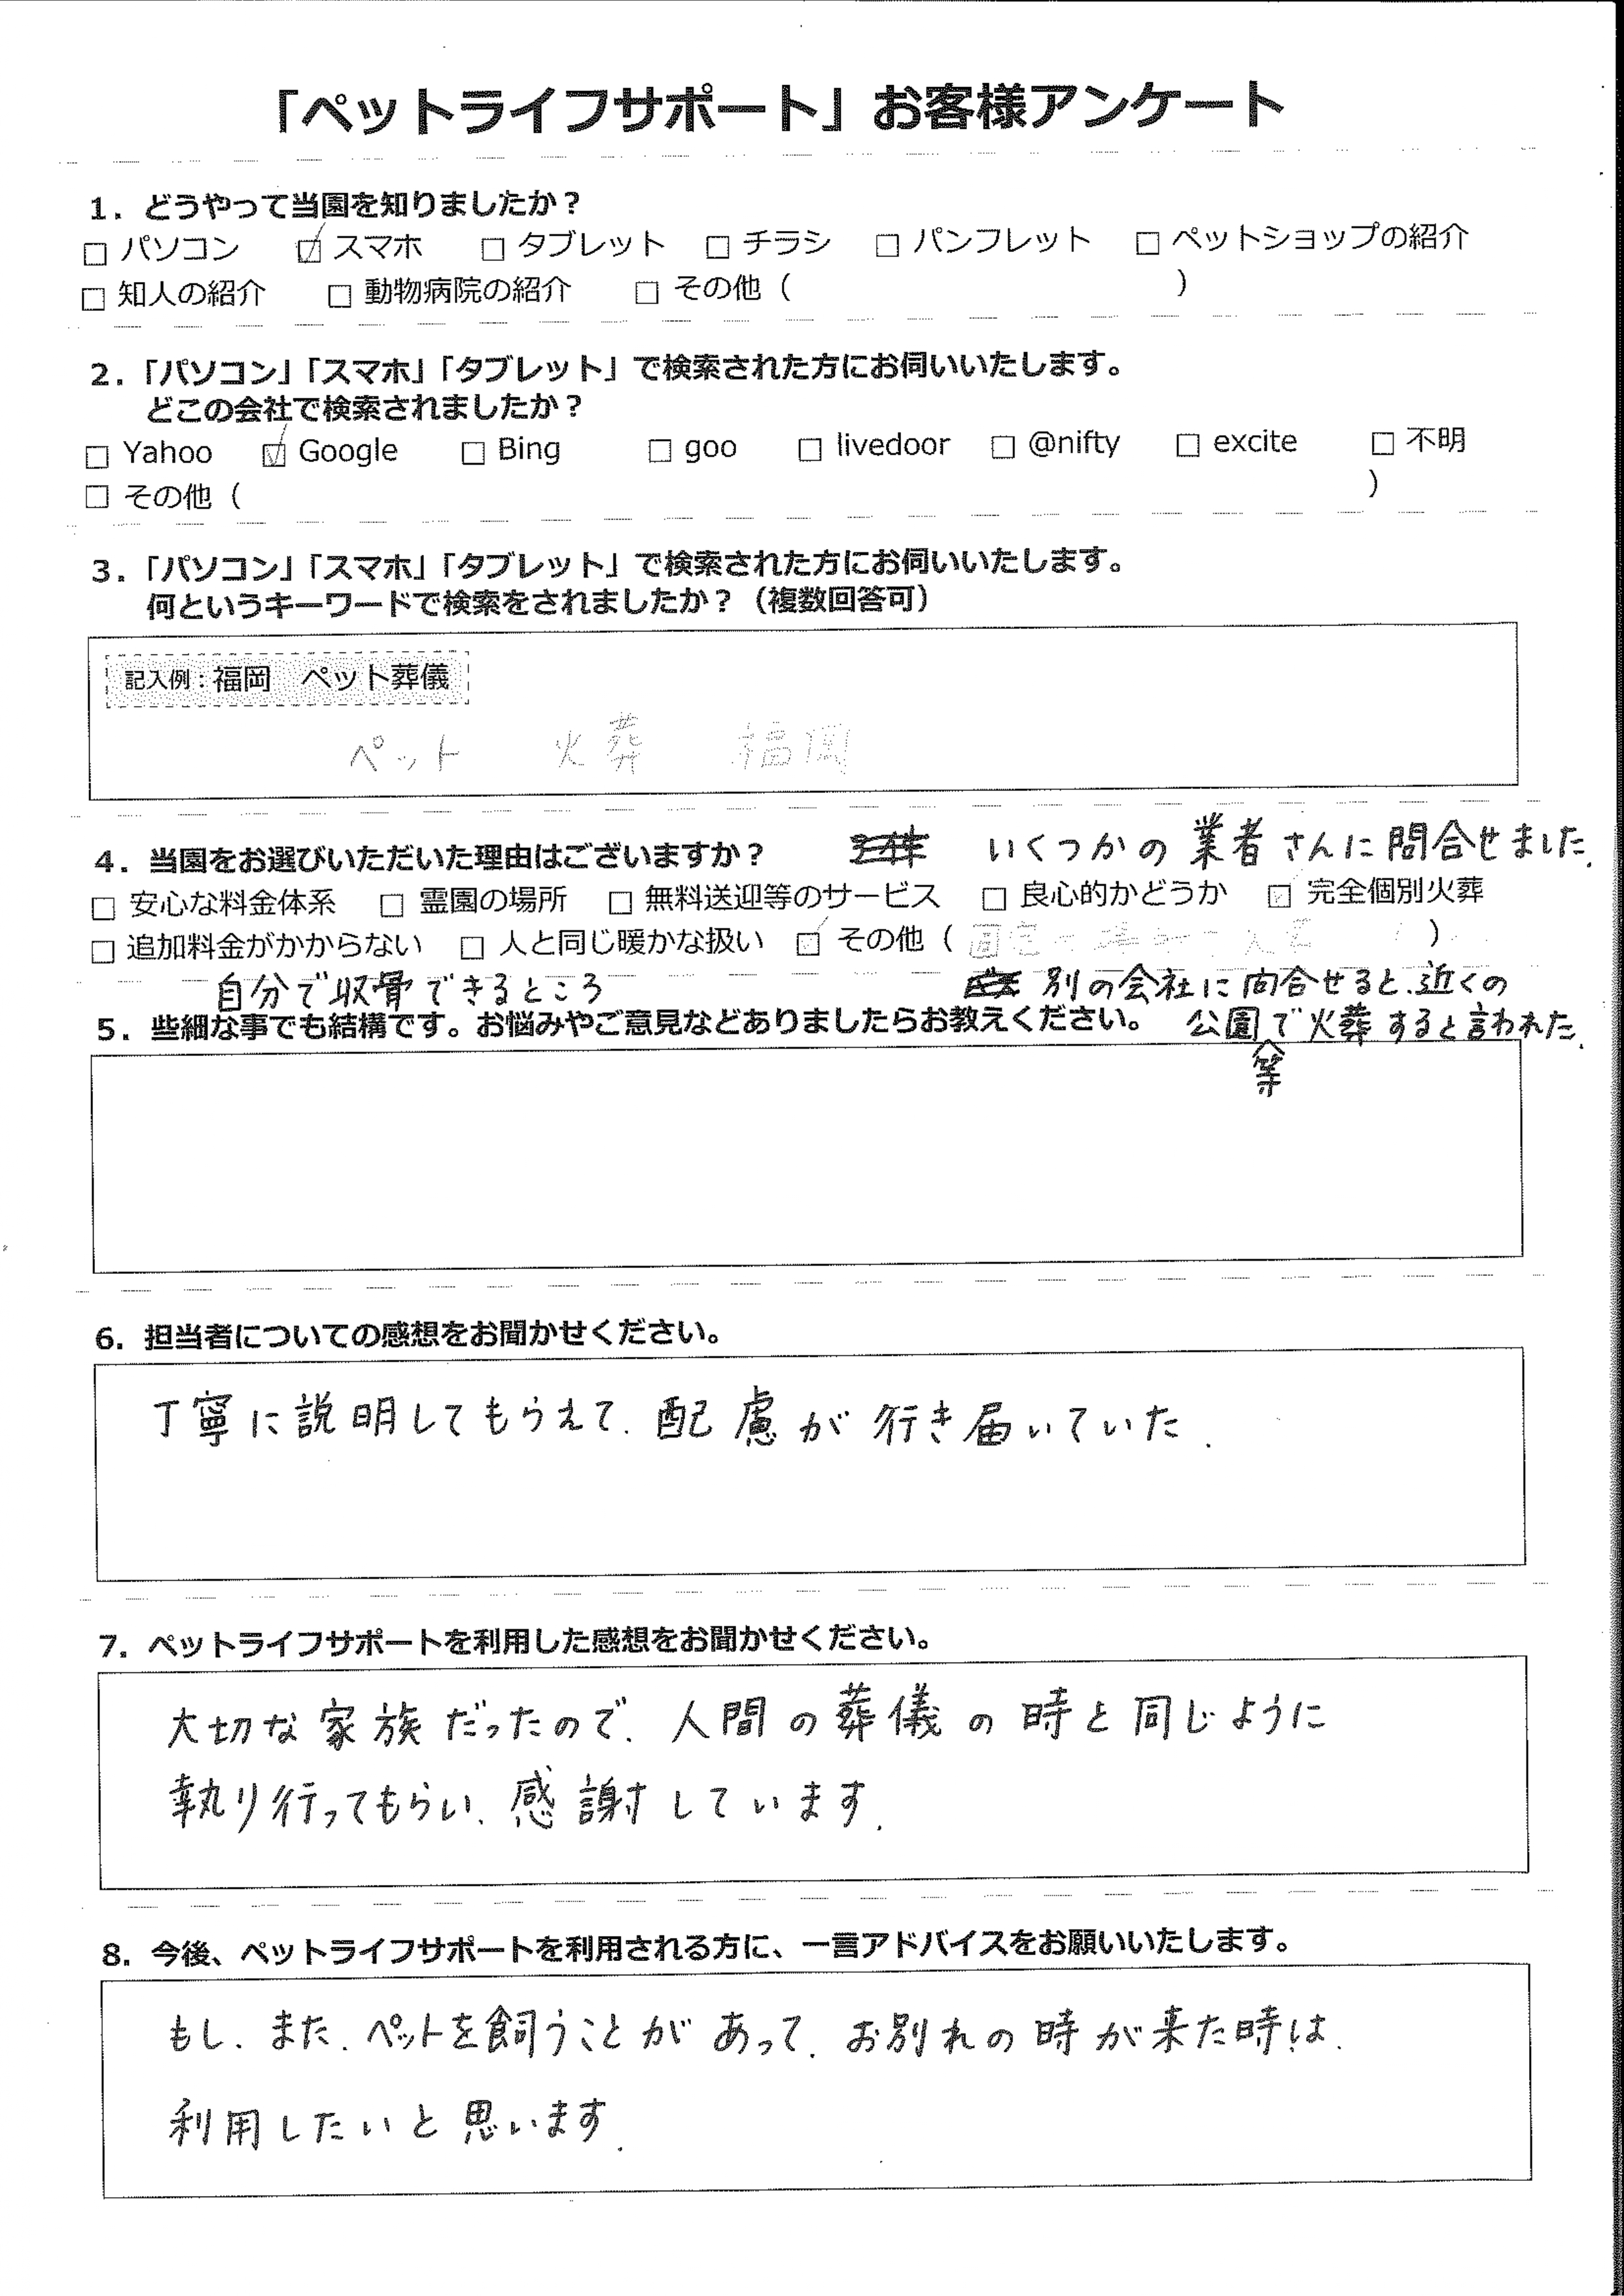 「ペットライフサポート」お客様アンケート
1. どうやって当園を知りましたか？
□ パソコン ☑ スマホ □ タブレット □ チラシ □ パンフレット □ ペットショップの紹介
□ 知人の紹介 □ 動物病院の紹介 □ その他（ ）
2.「パソコン」「スマホ」「タブレット」で検索された方にお伺いいたします。
どこの会社で検索されましたか？
□ Yahoo ☑ Google □ Bing □ goo □ livedoor □ @nifty □ excite □ 不明
□ その他（ ）
3.「パソコン」「スマホ」「タブレット」で検索された方にお伺いいたします。
何というキーワードで検索をされましたか？（複数回答可）
記入例：福岡 ペット葬儀
ペット 火葬 福岡
4. 当園をお選びいただいた理由はございますか？ いくつかの業者さんに問合せました.
□ 安心な料金体系 □ 霊園の場所 □ 無料送迎等のサービス □ 良心的かどうか ☑ 完全個別火葬
□ 追加料金がかからない □ 人と同じ暖かな扱い ☑ その他（ ）
自分で収骨できるところ 別の会社に問合せると、近くの
5. 些細な事でも結構です。お悩みやご意見などありましたらお教えください。 公園等で火葬すると言われた.
6. 担当者についての感想をお聞かせください。
丁寧に説明してもらえて、配慮が行き届いていた.
7. ペットライフサポートを利用した感想をお聞かせください。
大切な家族だったので、人間の葬儀の時と同じように
執り行ってもらい、感謝しています.
8. 今後、ペットライフサポートを利用される方に、一言アドバイスをお願いいたします。
もし、また、ペットを飼うことがあって、お別れの時が来た時は、
利用したいと思います.